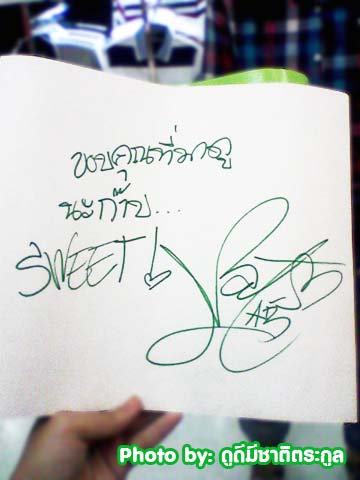 ขอบคุณที่มาดู
นะก๊าบ...
SWEET!
Photo by: ดูดีมีชาติตระกูล